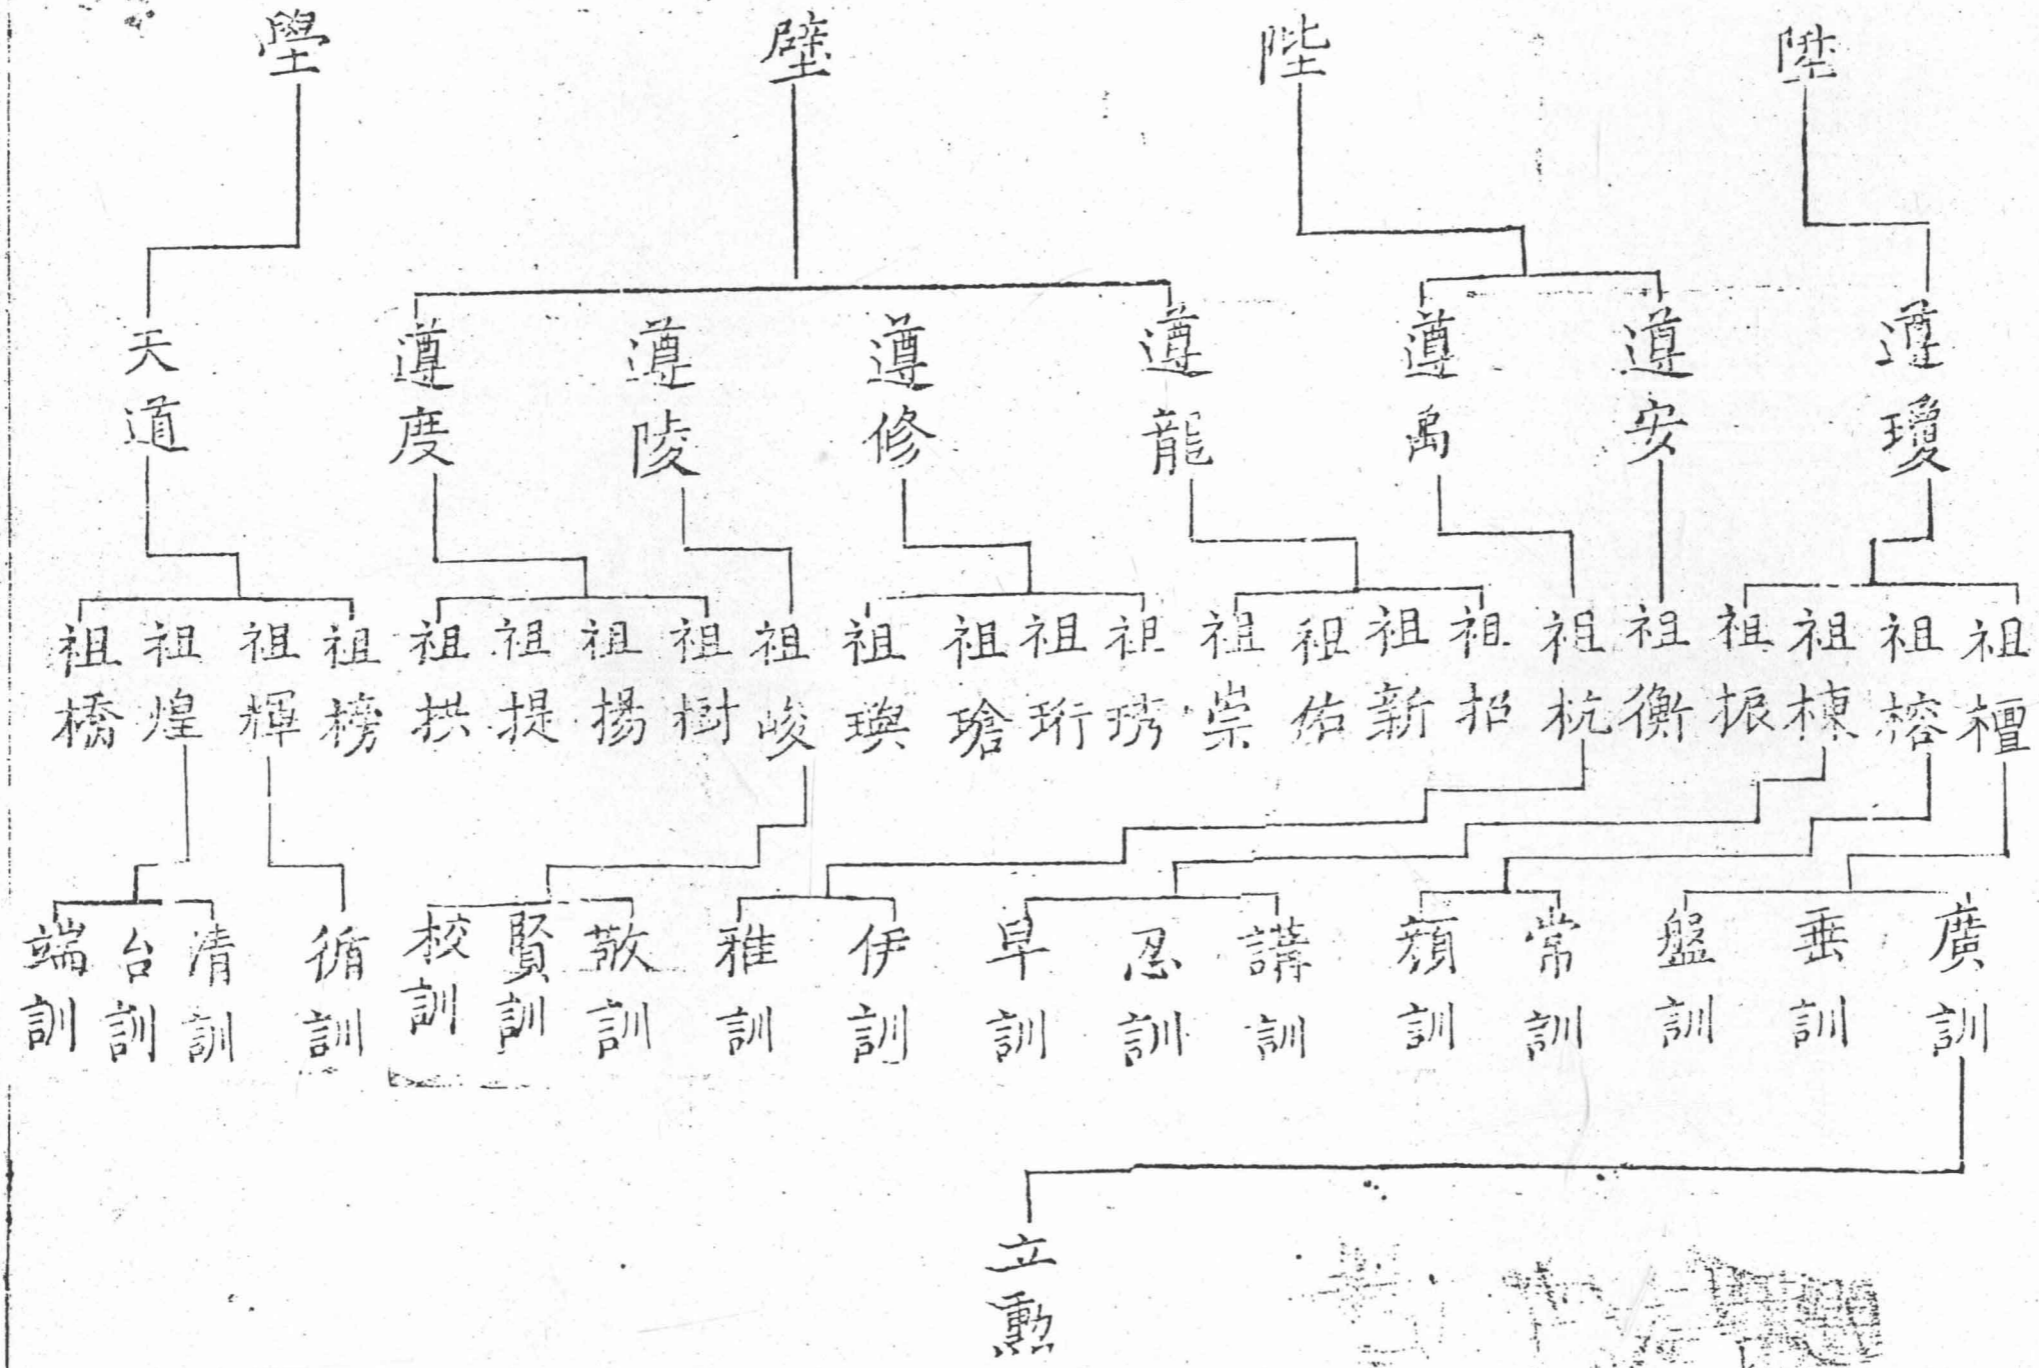 陞
陛
壁
壆
遵瓊
遵安
遵島
遵龍
遵修
遵陵
遵度
天道
祖檀
祖榕
祖棟
祖振
祖衡
祖杭
祖招
祖新
祖佑
祖崇
祖琇
祖珩
祖瑲
祖璵
祖峻
祖樹
祖揚
祖提
祖拱
祖榜
祖輝
祖煌
祖橋
廣訓
垂訓
盤訓
常訓
顏訓
講訓
忍訓
早訓
伊訓
雅訓
敬訓
賢訓
校訓
循訓
清訓
台訓
端訓
立勲